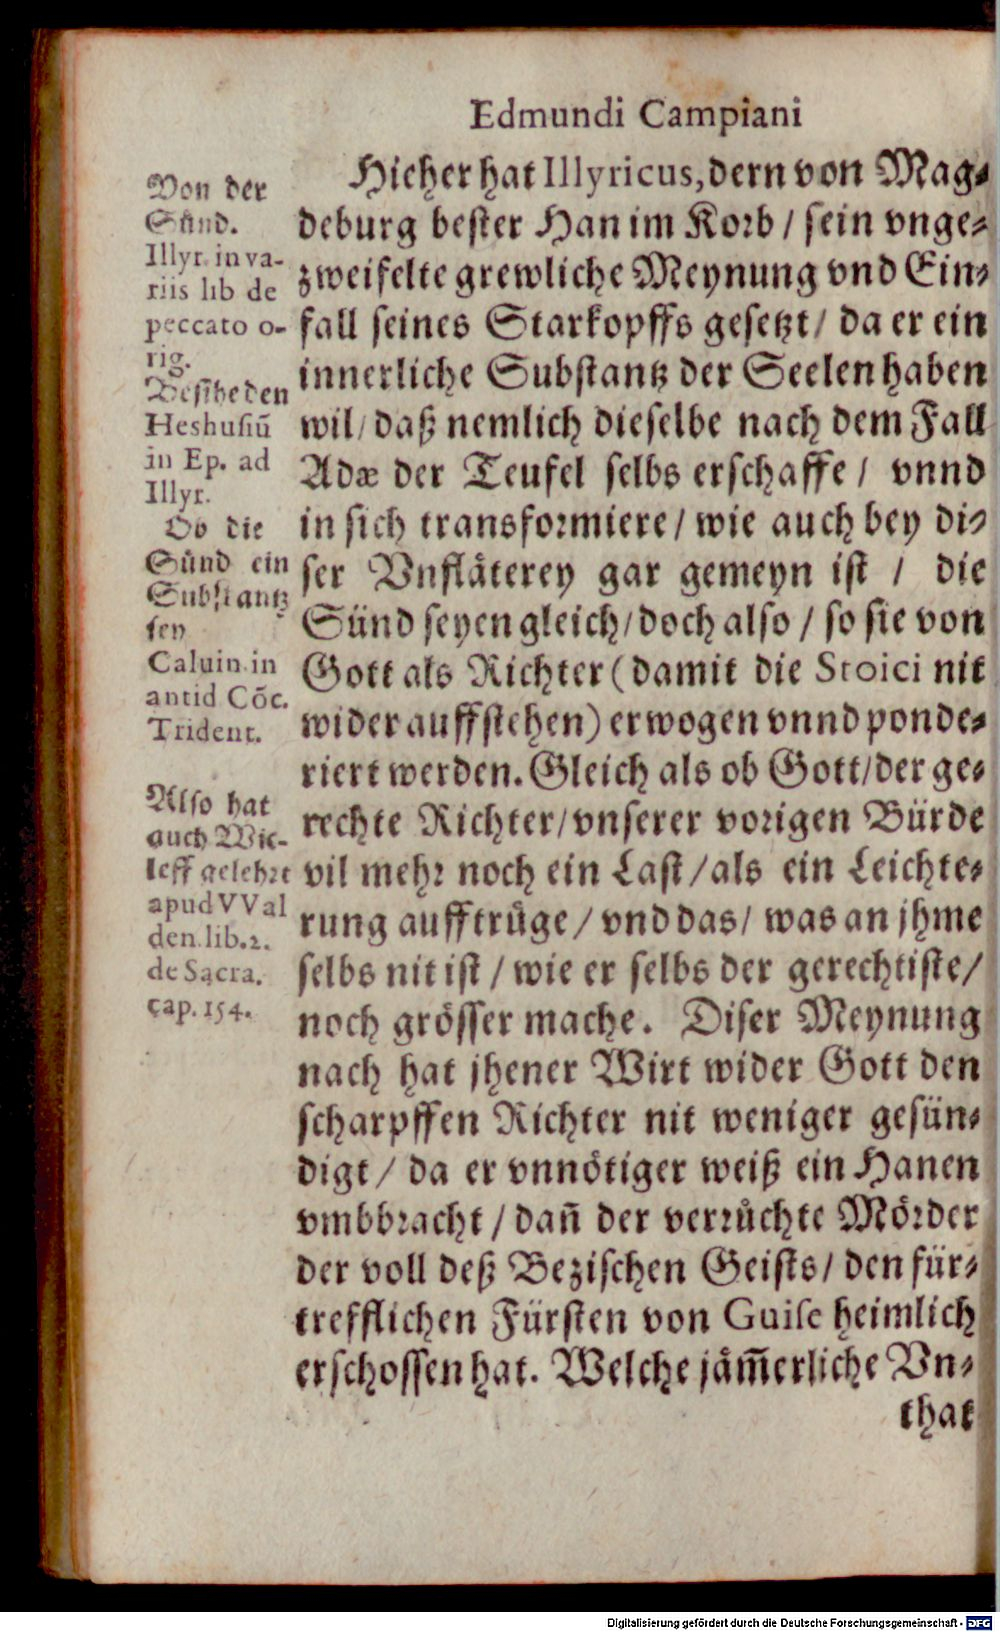 Edmundi Campiani
Hieher hat Illyricus, dern von Mag⸗
deburg bester Han im Korb / sein vnge⸗
zweifelte grewliche Meynung vnd Ein⸗
fall seines Starkopffs gesetzt / da er ein
innerliche Substantz der Seelen haben
wil / daß nemlich dieselbe nach dem Fall
Adæ der Teufel selbs erschaffe / vnnd
in sich transformiere / wie auch bey di⸗
ser Vnflåterey gar gemeyn ist / die
Sünd seyen gleich / doch also / so sie von
Gott als Richter (damit die Stoici nit
wider auffstehen) erwogen vnnd ponde⸗
riert werden. Gleich als ob Gott / der ge⸗
rechte Richter / vnserer vorigen Bürde
vil mehr noch ein Last / als ein Leichte⸗
rung aufftrůge / vnd das / was an jhme
selbs nit ist / wie er selbs der gerechtiste /
noch grösser mache. Diser Meynung
nach hat jhener Wirt wider Gott den
scharpffen Richter nit weniger gesün⸗
digt / da er vnnötiger weiß ein Hanen
vmbbracht / dañ der verrůchte Mörder
der voll deß Bezischen Geists / den für⸗
trefflichen Fürsten von Guise heimlich
erschossen hat. Welche jåm̃erliche Vn⸗
that
Von der
Sůnd.
Illyr. in va-
riis lib de
peccato o-
rig.
Besihe den
Heshusiũ
in Ep. ad
Illyr.
Ob die
Sünd ein
Substantz
sey
Caluin. in
antid Cõc.
Trident.
Also hat
auch Wic-
leff gelehrt
apud VVal
den. lib. 2.
de Sacra.
cap. 154.
Digitalisierung gefördert durch die Deutsche Forschungsgemeinschaft - DFG